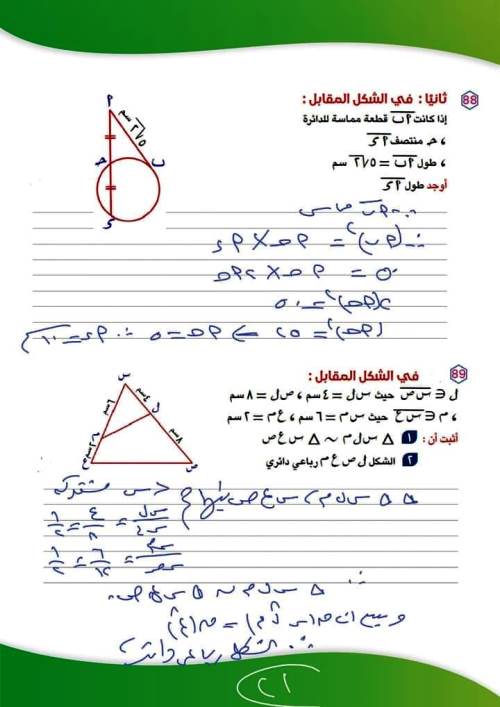 88 ثانيًا : في الشكل المقابل :
إذا كانت أب قطعة مماسة للدائرة
، حـ منتصف أء
، طول أب = ٥√٢ سم
أوجد طول أء
أ
٥√٢ سم
حـ
ب
ء
∵ أب مماس
∴ (أب)² = أحـ × أء
٥٠ = أحـ × ٢أحـ
٢(أحـ)² = ٥٠
(أحـ)² = ٢٥ ⇐ أحـ = ٥ ∴ أء = ١٠سم
89 في الشكل المقابل :
ل ∈ س ص حيث س ل = ٤ سم ، ص ل = ٨ سم
، م ∈ س ع حيث س م = ٦ سم ، ع م = ٢ سم
أثبت أن : 1 △ س ل م ~ △ س ع ص
2 الشكل ل ص ع م رباعي دائري
س
٤ سم
٦ سم
ل
٨ سم
م
٢ سم
ع
ص
△ △ س ل م ، س ع ص فيهما { < س مشتركة
س ل / س ع = ٤ / ٨ = ١ / ٢
س م / س ص = ٦ / ١٢ = ١ / ٢
∴ △ س ل م ~ △ س ع ص
∴ الشكل رباعي دائري
٢١